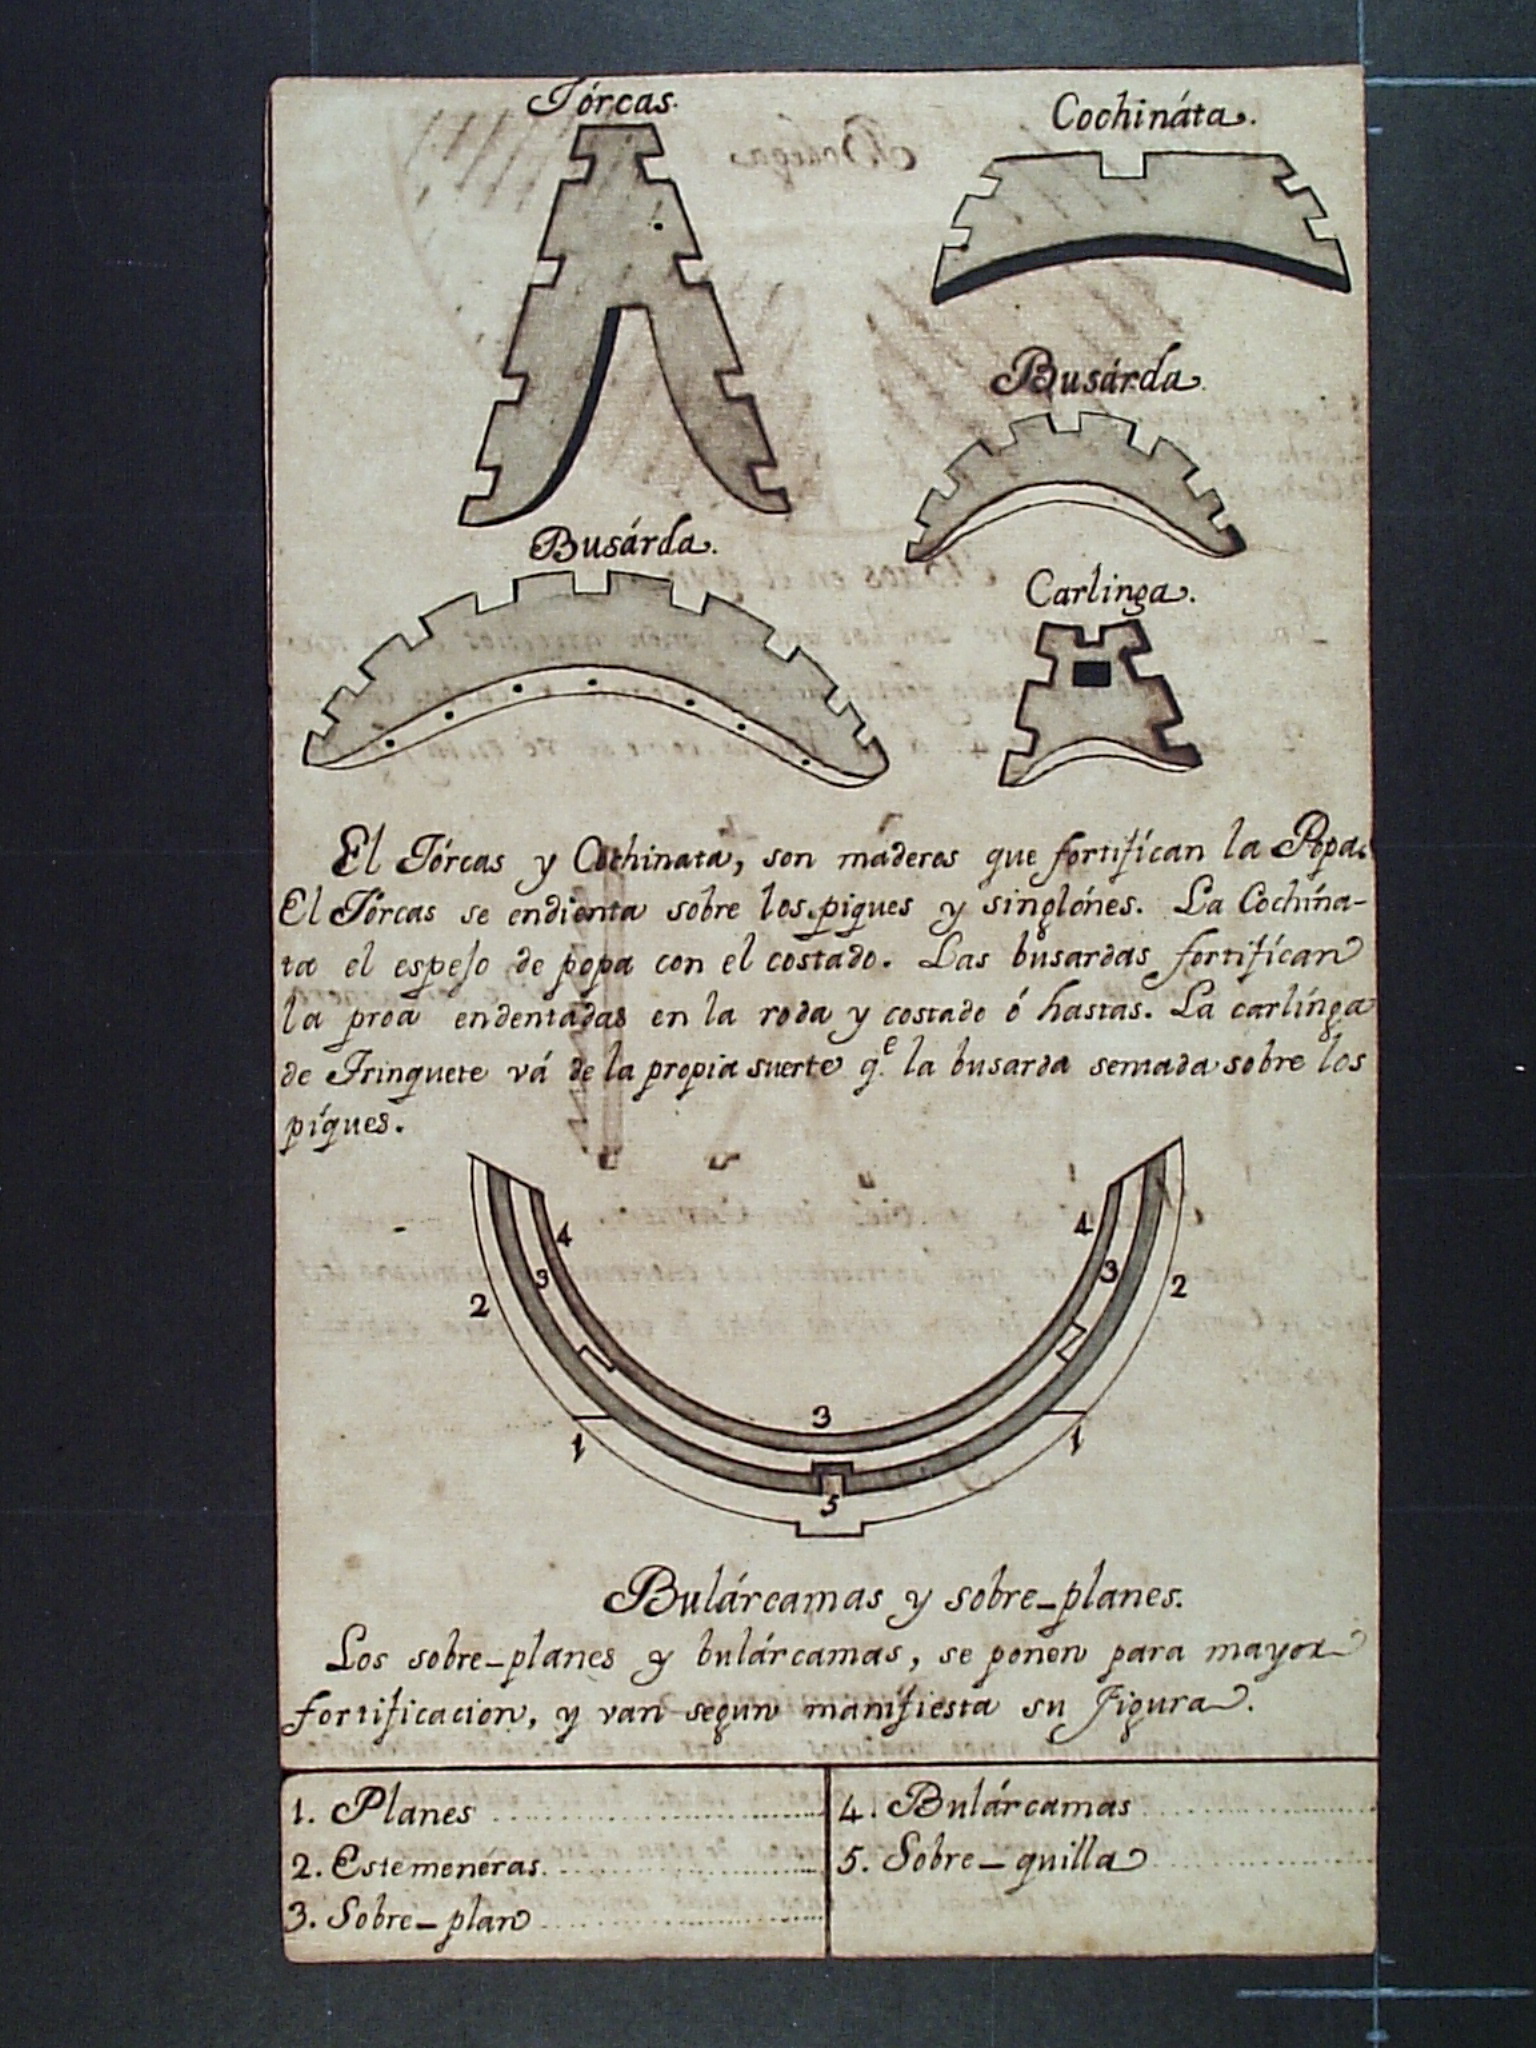 Tórcas.
Cochináta.
Busárda.
Busárda.
Carlinga.
El Tórcas y Cochinata, son maderos que fortifícan la Popa.
El Tórcas se endienta sobre los piques y singlónes. La Cochína-
ta el espejo de popa con el costado. Las busardas fortifícan
la proa endentádas en la roda y costado ó hastas. La carlínga
de Trinquete vá de la propia suerte q.e la busarda sentada sobre los
píques.
4 4
3 3
2 2
3
1 1
5
Bulárcamas y sobre-planes.
Los sobre-planes y bulárcamas, se ponen para mayor
fortificacion, y van segun manifiesta su Figura.
1. Planes
2. Estemenéras.
3. Sobre-plan
4. Bulárcamas
5. Sobre-quilla